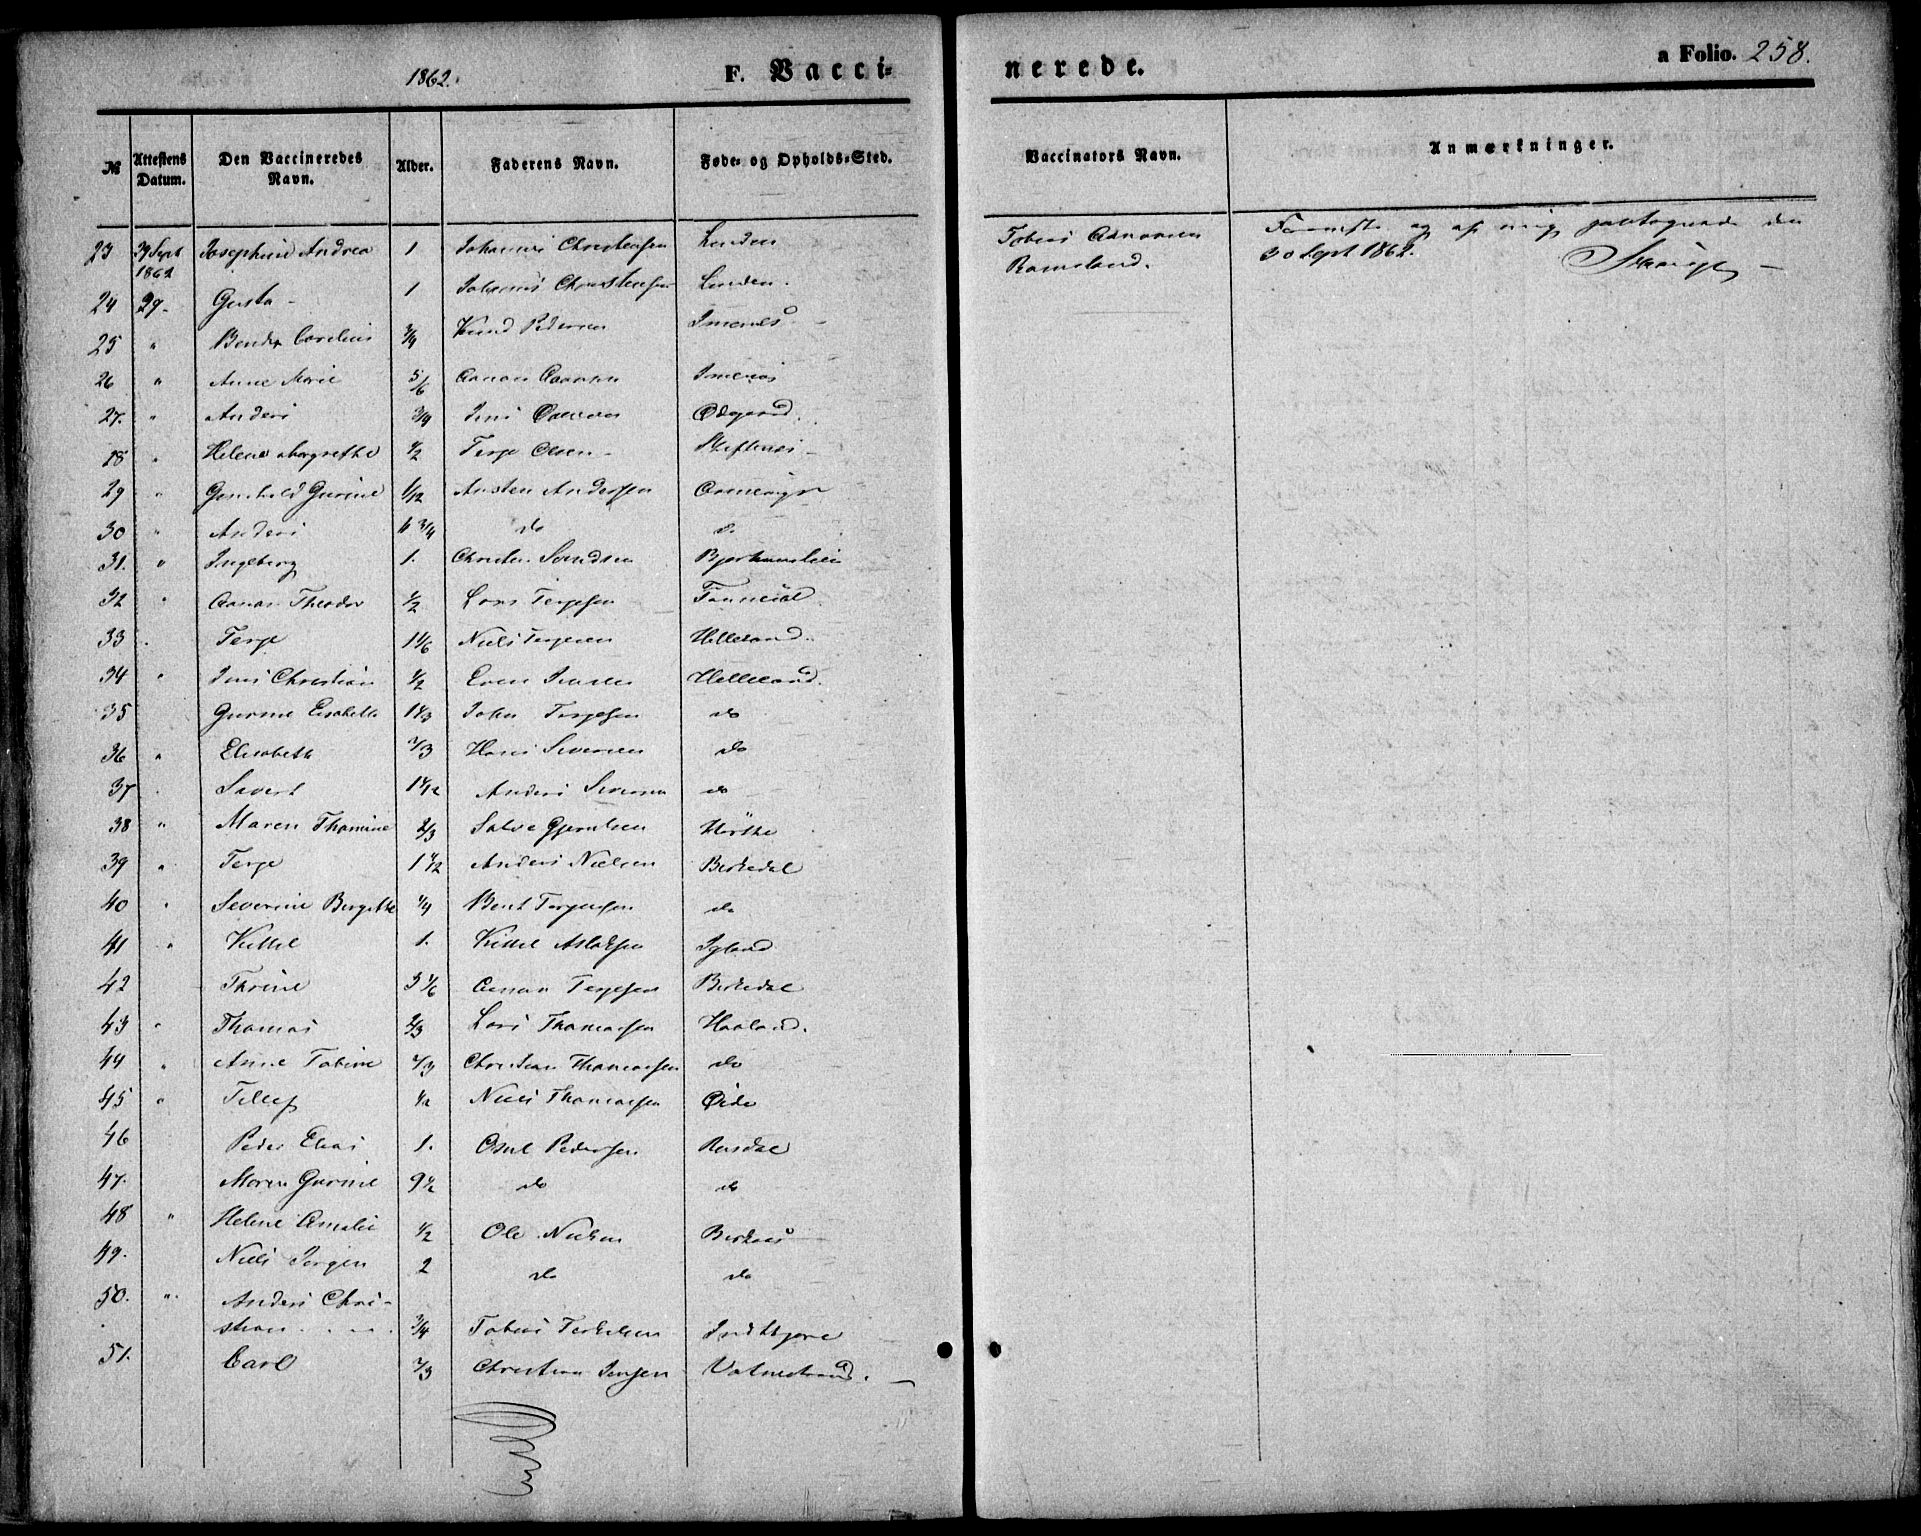 1862. F. Vacci-
nerede. a Folio. 258.
№ Attestens Datum. Den Vaccineredes Navn. Alder. Faderens Navn. Føde- og Opholds-Sted. Vaccinators Navn. Anmærkninger.
23 29 Sept 1862 Josephine Andrea 1 Johannes Christensen Linden Tobias Aanonsen
Ramsland.
og af mig den
30 Sept 1862.
24 29. Gusta - 1 Johannes Christensen Linden.
25 " Bendix Cornelius 3/4 Knud Pedersen Imenes -
26 " Anne Marie 5/6 Aanon Aanonsen Imenes
27. " Anders 3/4 Jens Ødegaard.
28 " Helene Margrethe 1/2 Terje Olsen -
29 " Gunhild Gurine 1/12 Austen Andersen
30 " Anders 6 3/4 do do
31. " Ingeborg 1. Christen
32 " Aanon Theodor 1/2 Lars Tergesen
33 . Terje 1 1/6 Niels Tergesen Helleland.
34 " Jens Christian 1/2 Even Jensen Helleland.
35 Gurine Elisabeth 1 1/3 John Tergesen do
36 " Elisabeth 2/3 Hans Seversen do
37 . Severt 1 1/12 Anders Seversen do
38 " Maren Thomine 2/3 Salve Gjerulsen
39 " Terje 1 1/2 Anders Nielsen Birkedal
40 " Severine Birgitte 1/4 Bent Tergesen do
41 " Kittel 1. Kittel Aslaksen Igland
42 Thrine 3 1/6 Aanon Tergesen Birkedal
43 " Thomas 2/3 Lars Thomassen Haaland.
44 " Anne Tobine 2/3 Christian Thomassen do
45 " Tellef 1/2 Niels Thomassen Øide
46 Peder Elias 1. Osul Pedersen Rosdal
47. Maren Gurine 9 1/2 do do
48 " Helene Amalie 1/2 Ole Nielsen Birknes
49. Niels Jørgen 2 do do
50. " Anders Chri-
stian 3/4 Tobias Terkelsen
51. Carl 2/3 Christian Jensen Vatnestrand.